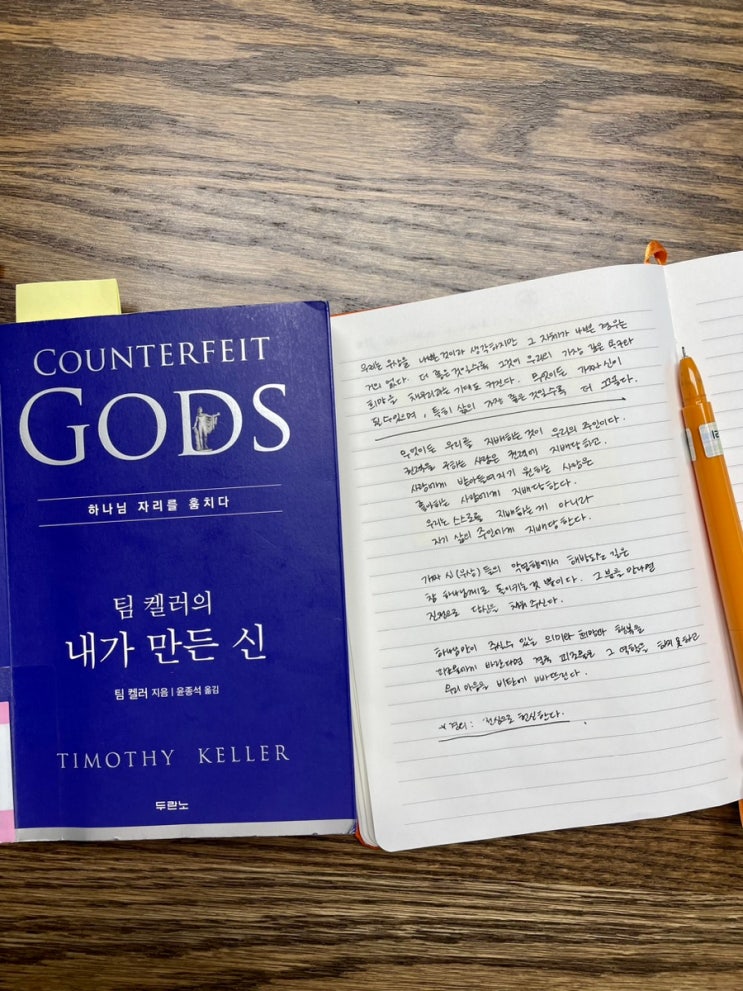 COUNTERFEIT
GODS
하나님 자리를 훔치다
팀 켈러의
내가 만든 신
팀 켈러 지음 | 윤종석 옮김
TIMOTHY KELLER
두란노
우리는 우상을 나쁜 것이라 생각하지만 그 자체가 나쁜 경우는
거의 없다. 더 좋은 것일수록 그것이 우리의 가장 깊은 욕구와
희망을 채워주리라는 기대도 커진다. 무엇이든 가짜 신이
될 수 있으며, 특히 삶의 가장 좋은 것일수록 더 그렇다.
무엇이든 우리를 지배하는 것이 우리의 주인이다.
권력을 구하는 사람은 권력에 지배당하고.
사랑에게 받아들여지기 원하는 사람은
좋아하는 사람에게 지배당한다.
우리는 스스로를 지배하는 게 아니라
자기 삶의 주인에게 지배당한다.
가짜 신(우상)들의 악영향에서 해방되는 길은
참 하나님께로 돌이키는 것 뿐이다. 그 분을 만나면
진정으로 당신을 채워 주신다.
하나님만이 주실 수 있는 의미와 희망과 행복을
피조물에게 바란다면 결국 피조물은 그 역할을 하지 못하고
우리 마음을 비탄에 빠뜨린다.
진심으로 헌신한다.